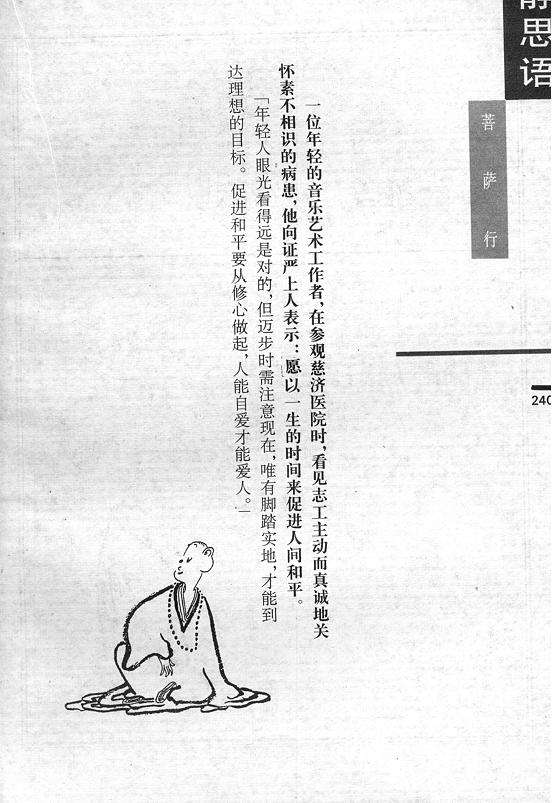 静思语
菩萨行
240
一位年轻的音乐艺术工作者，在参观慈济医院时，看见志工主动而真诚地关
怀素不相识的病患，他向证严上人表示：愿以一生的时间来促进人间和平。
「年轻人眼光看得远是对的，但迈步时需注意现在，唯有脚踏实地，才能到
达理想的目标。促进和平要从修心做起，人能自爱才能爱人。」